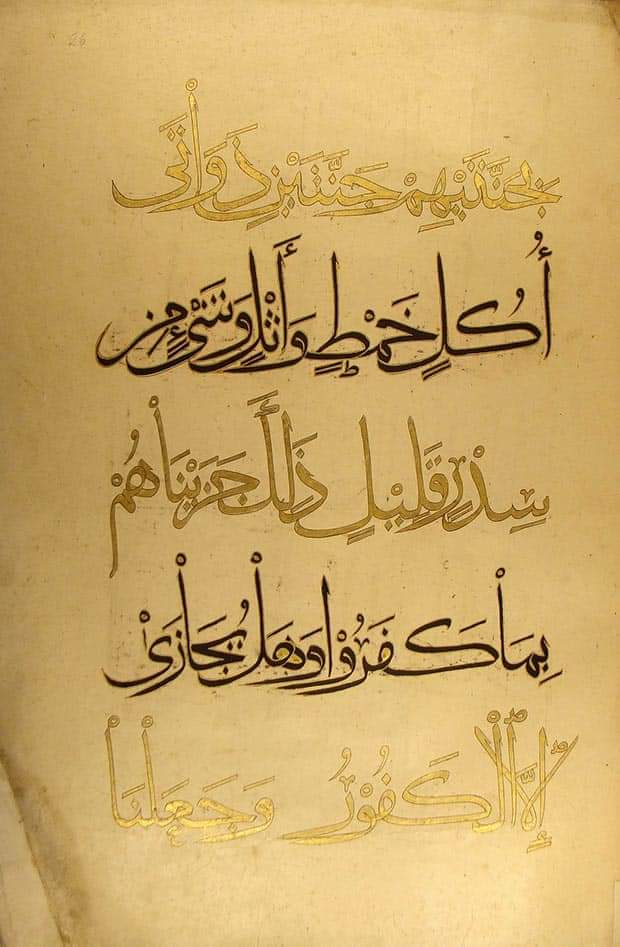 26
بِجَنَّتَيْهِمْ جَنَّتَيْنِ ذَوَاتَى
أُكُلٍ خَمْطٍ وَأَثْلٍ وَشَىْءٍ مِنْ
سِدْرٍ قَلِيْلٍ ذَلِكَ جَزَيْنَاهُمْ
بِمَا كَفَرُوْا وَهَلْ يُجَازَىٰ
إِلَّا الْكَفُوْرُ وَجَعَلْنَا